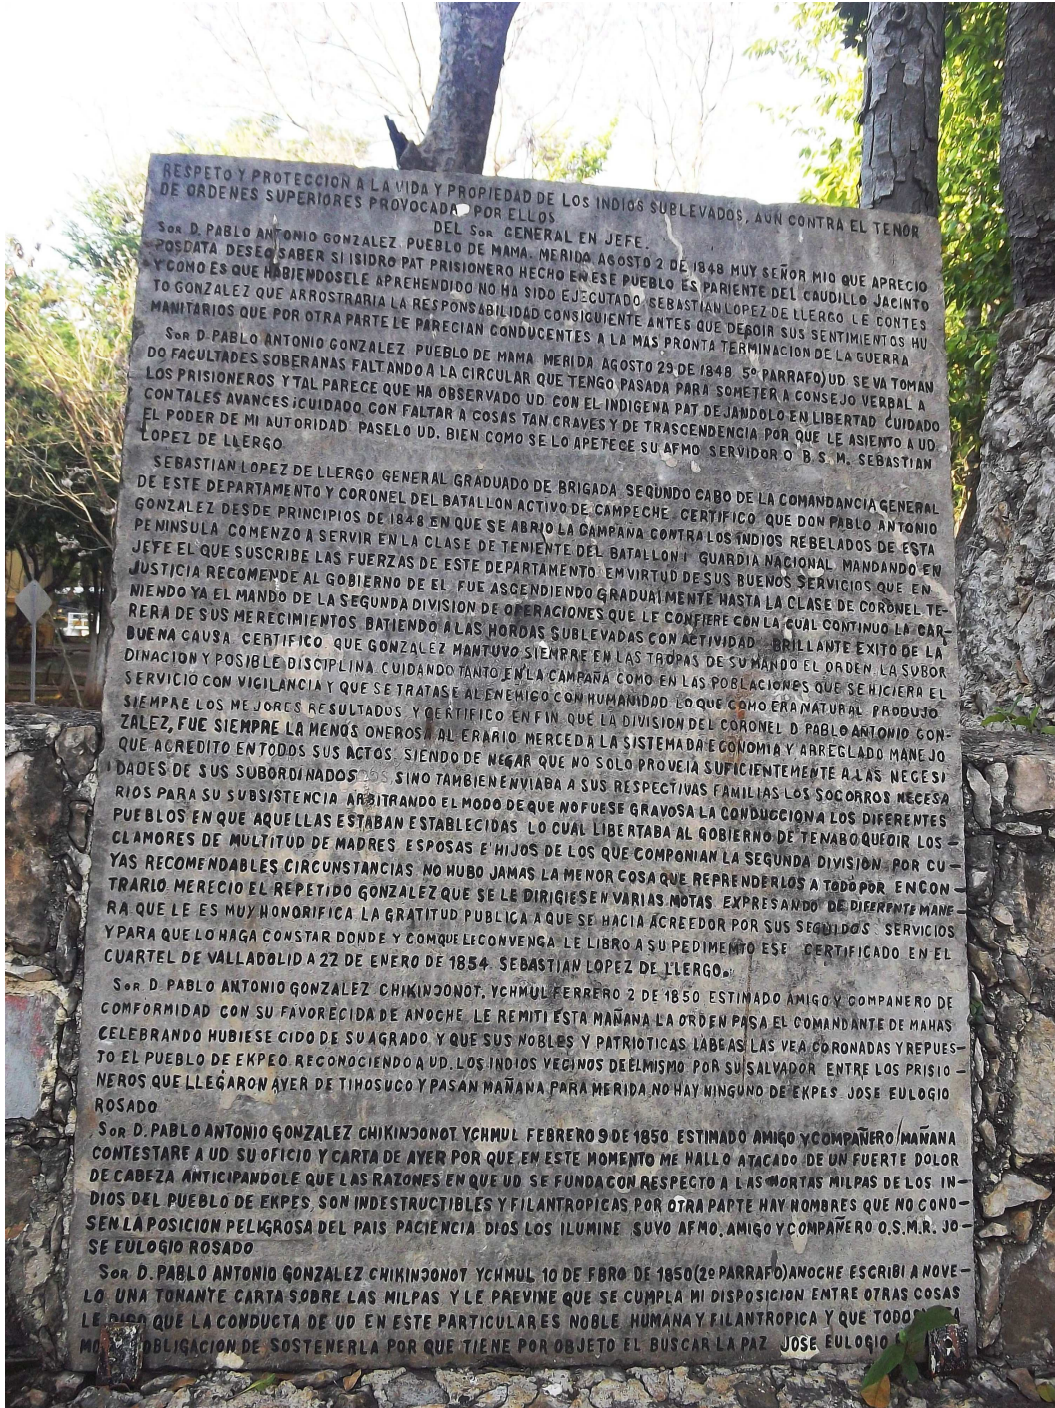 RESPETO Y PROTECCION A LA VIDA Y PROPIEDAD DE LOS INDIOS SUBLEVADOS, AUN CONTRA EL TENOR
DE ORDENES SUPERIORES PROVOCADA POR ELLOS.
DEL SOR GENERAL EN JEFE.
SOR D. PABLO ANTONIO GONZALEZ. PUEBLO DE MAMA. MERIDA AGOSTO 2 DE 1848 MUY SEÑOR MIO QUE APRECIO
POSDATA DESEO SABER SI ISIDRO PAT PRISIONERO HECHO EN ESE PUEBLO ES PARIENTE DEL CAUDILLO JACINTO
Y COMO ES QUE HABIENDOSELE APREHENDIDO NO HA SIDO EJECUTADO SEBASTIAN LOPEZ DE LLERGO LE CONTES
TO GONZALEZ QUE ARROSTRARIA LA RESPONSABILIDAD CONSIGUIENTE ANTES QUE DESOIR SUS SENTIMIENTOS HU
MANITARIOS QUE POR OTRA PARTE LE PARECIAN CONDUCENTES A LA MAS PRONTA TERMINACION DE LA GUERRA
SOR D. PABLO ANTONIO GONZALEZ PUEBLO DE MAMA MERIDA AGOSTO 29 DE 1848 5º PARRAFO) UD. SE VA TOMAN
DO FACULTADES SOBERANAS FALTANDO A LA CIRCULAR QUE TENGO PASADA PARA SOMETER A CONSEJO VERBAL A
LOS PRISIONEROS Y TAL PARECE QUE HA OBSERVADO UD. CON EL INDIGENA PAT DEJANDOLO EN LIBERTAD CUIDADO
CON TALES AVANCES ¡CUIDADO CON FALTAR A COSAS TAN GRAVES Y DE TRASCENDENCIA POR QUE LE ASIENTO A UD.
EL PODER DE MI AUTORIDAD PASELO UD. BIEN COMO SE LO APETECE SU AFMO SERVIDOR O B.S.M. SEBASTIAN
LOPEZ DE LLERGO
SEBASTIAN LOPEZ DE LLERGO GENERAL GRADUADO DE BRIGADA SEGUNDO CABO DE LA COMANDANCIA GENERAL
DE ESTE DEPARTAMENTO Y CORONEL DEL BATALLON ACTIVO DE CAMPECHE CERTIFICO QUE DON PABLO ANTONIO
GONZALEZ DESDE PRINCIPIOS DE 1848 EN QUE SE ABRIO LA CAMPAÑA CONTRA LOS INDIOS REBELADOS DE ESTA
PENINSULA COMENZO A SERVIR EN LA CLASE DE TENIENTE DEL BATALLON 1 GUARDIA NACIONAL MANDANDO EN
JEFE EL QUE SUSCRIBE LAS FUERZAS DE ESTE DEPARTAMENTO EMVIRTUD DE SUS BUENOS SERVICIOS QUE EN
JUSTICIA RECOMENDE AL GOBIERNO DE EL FUE ASCENDIENDO GRADUALMENTE HASTA LA CLASE DE CORONEL TE-
NIENDO YA EL MANDO DE LA SEGUNDA DIVISION DE OPERACIONES QUE LE CONFIERE CON LA CUAL CONTINUO LA CAR-
RERA DE SUS MERECIMIENTOS BATIENDO A LAS HORDAS SUBLEVADAS CON ACTIVIDAD BRILLANTE EXITO DE LA
BUENA CAUSA CERTIFICO QUE GONZALEZ MANTUVO SIEMPRE EN LAS TROPAS DE SU MANDO EL ORDEN LA SUBOR
DINACION Y POSIBLE DISCIPLINA CUIDANDO TANTO EN LA CAMPAÑA COMO EN LAS POBLACIONES QUE SE HICIERA EL
SERVICIO CON VIGILANCIA Y QUE SE TRATASE AL ENEMIGO CON HUMANIDAD LO QUE COMO ERA NATURAL PRODUJO
SIEMPRE LOS MEJORES RESULTADOS Y CERTIFICO EN FIN QUE LA DIVISION DEL CORONEL D PABLO ANTONIO GON-
ZALEZ, FUE SIEMPRE LA MENOS ONEROSA AL ERARIO MERCED A LA SISTEMADA ECONOMIA Y ARREGLADO MANEJO
QUE ACREDITO EN TODOS SUS ACTOS. SIENDO DE NEGAR QUE NO SOLO PROVEIA SUFICIENTEMENTE A LAS NECESI
DADES DE SUS SUBORDINADOS SINO TAMBIEN ENVIABA A SUS RESPECTIVAS FAMILIAS LOS SOCORROS NECESA
RIOS PARA SU SUBSISTENCIA ARBITRANDO EL MODO DE QUE NO FUESE GRAVOSA LA CONDUCCION A LOS DIFERENTES
PUEBLOS EN QUE AQUELLAS ESTABAN ESTABLECIDAS LO CUAL LIBERTABA AL GOBIERNO DE TENABO QUEOIR LOS
CLAMORES DE MULTITUD DE MADRES ESPOSAS E HIJOS DE LOS QUE COMPONIAN LA SEGUNDA DIVISION POR CU-
YAS RECOMENDABLES CIRCUNSTANCIAS NO HUBO JAMAS LA MENOR COSA QUE REPRENDERLOS A TODO POR ENCON-
TRARIO MERECIO EL REPETIDO GONZALEZ QUE SE LE DIRIGIESEN VARIAS MOTAS EXPRESANDO DE DIFERENTE MANE-
RA QUE LE ES MUY HONORIFICA LA GRATITUD PUBLICA A QUE SE HACIA ACREEDOR POR SUS SEGUIDOS SERVICIOS
Y PARA QUE LO HAGA CONSTAR DONDE Y COMQUE LE CONVENGA LE LIBRO A SU PEDIMENTO ESE CERTIFICADO EN EL
CUARTEL DE VALLADOLID A 22 DE ENERO DE 1854. SEBASTIAN LOPEZ DE LLERGO.
SOR D PABLO ANTONIO GONZALEZ CHIKINƆONOT, YCHMUL FERRERO 2 DE 1850 ESTIMADO AMIGO Y COMPANERO DE
COMFORMIDAD CON SU FAVORECIDA DE ANOCHE LE REMITI ESTA MAÑANA LA ORDEN PASA EL COMANDANTE DE MAHAS
CELEBRANDO HUBIESE CIDO DE SU AGRADO Y QUE SUS NOBLES Y PATRIOTICAS LABEAS LAS VEA CORONADAS Y REPUES-
TO EL PUEBLO DE EKPEO RECONOCIENDO A UD. LOS INDIOS VECINOS DE EL MISMO POR SU SALVADOR ENTRE LOS PRISIO-
NEROS QUE LLEGARON AYER DE TIHOSUCO Y PASAN MAÑANA PARA MERIDA NO HAY NINGUNO DE EKPES JOSE EULOGIO
ROSADO
SOR D. PABLO ANTONIO GONZALEZ CHIKINƆONOT YCHMUL FEBRERO 9 DE 1850 ESTIMADO AMIGO Y COMPAÑERO MAÑANA
CONTESTARE A UD SU OFICIO Y CARTA DE AYER POR QUE EN ESTE MOMENTO ME HALLO ATACADO DE UN FUERTE DOLOR
DE CABEZA ANTICIPANDOLE QUE LAS RAZONES EN QUE UD SE FUNDA CON RESPECTO A LAS MORTAS MILPAS DE LOS IN-
DIOS DEL PUEBLO DE EKPES, SON INDESTRUCTIBLES Y FILANTROPICAS POR OTRA PAPTE HAY NOMBRES QUE NO CONO-
SEN LA POSICION PELIGROSA DEL PAIS PACIENCIA DIOS LOS ILUMINE SUYO AFMO. AMIGO Y COMPAÑERO O.S.M.R. JO-
SE EULOGIO ROSADO
SOR D. PABLO ANTONIO GONZALEZ CHIKINƆONOT YCHMUL 10 DE FBRO DE 1850 (2º PARRAFO) ANOCHE ESCRIBI A NOVE-
LO UNA TONANTE CARTA SOBRE LAS MILPAS Y LE PREVINE QUE SE CUMPLA MI DISPOSICION ENTRE OTRAS COSAS
LE DIGO QUE LA CONDUCTA DE UD EN ESTE PARTICULAR ES NOBLE HUMANA Y FILANTROPICA Y QUE TODOS
OBLIGACION DE SOSTENERLA POR QUE TIENE POR OBJETO EL BUSCAR LA PAZ JOSE EULOGIO